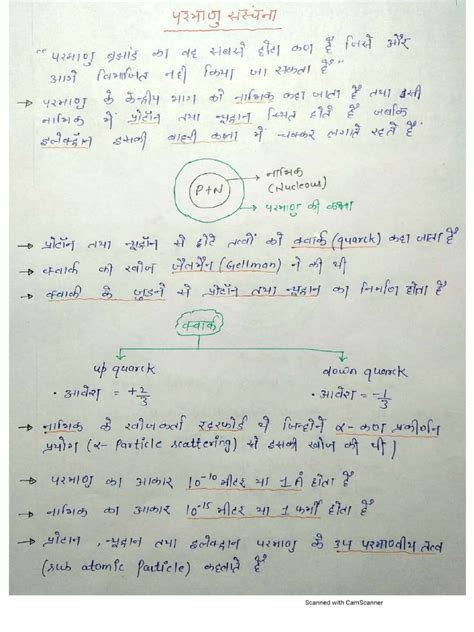 परमाणु सरंचना
"परमाणु ब्रह्मांड का वह सबसे छोटा कण है जिसे और
आगे विभाजित नही किया जा सकता है"
→ परमाणु के केन्द्रीय भाग को नाभिक कहा जाता है तथा इसी
नाभिक में प्रोटॉन तथा न्यूट्रान स्थित होते हैं जबकि
इलेक्ट्रॉन इसकी बाहरी कक्षा में चक्कर लगाते रहते हैं
P+N
→ नाभिक
(Nucleous)
→ परमाणु की कक्षा
→ प्रोटॉन तथा न्यूट्रॉन से छोटे तत्वों को क्वार्क (quarck) कहा जाता है
→ क्वार्क की खोज जैलमैन (Gellman) ने की थी
→ क्वार्को के जुडने से प्रोटॉन तथा न्यूट्रान का निर्माण होता है
क्वार्क
up quarck
down quarck
• आवेश = +2/3
• आवेश = -1/3
→ नाभिक के खोजकर्ता रदरफोर्ड थे जिन्होंने α-कण प्रकीर्णन
प्रयोग (α- Particle scattering) से इसकी खोज की थी |
→ परमाणु का आकार 10⁻¹⁰ मीटर या 1 होता है
→ नाभिक का आकार 10⁻¹⁵ मीटर या 1 फर्मी होता है
→ प्रोटान, न्यूट्रान तथा इलेक्ट्रान परमाणु के उप परमाण्वीय तत्व
(sub atomic Particle) कहलाते है
Scanned with CamScanner